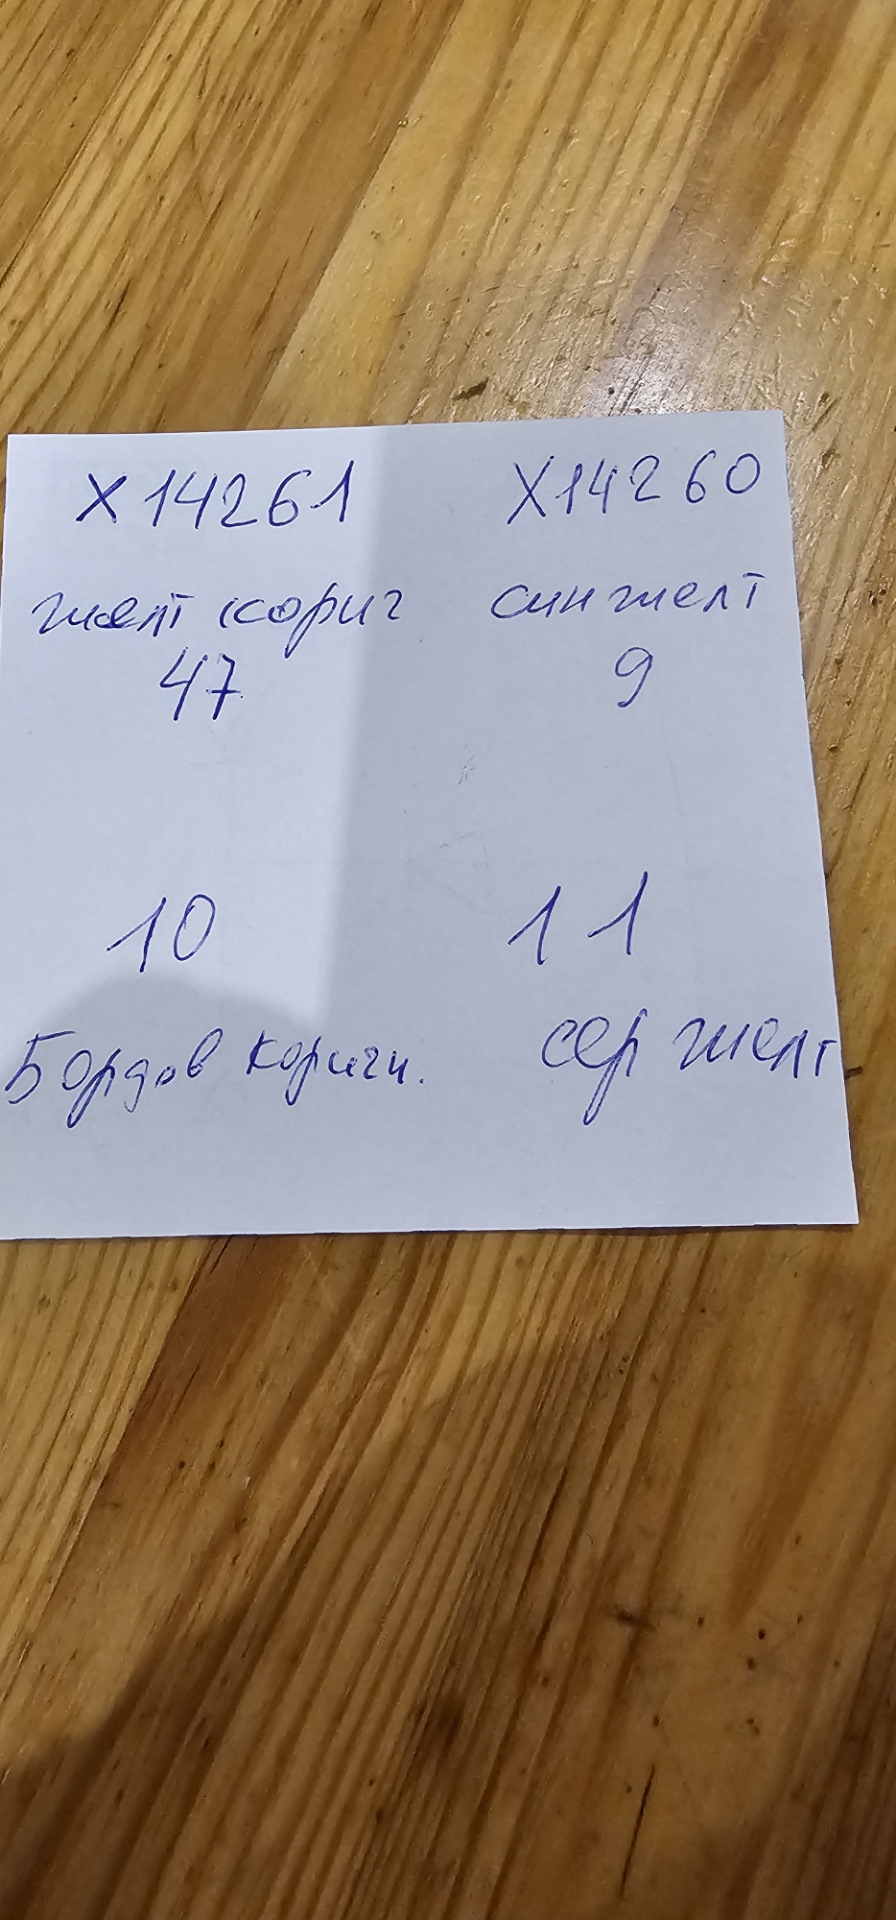 X14261 X14260
желт кориг син желт
47 9
10 11
Бордов коригн. сер желт